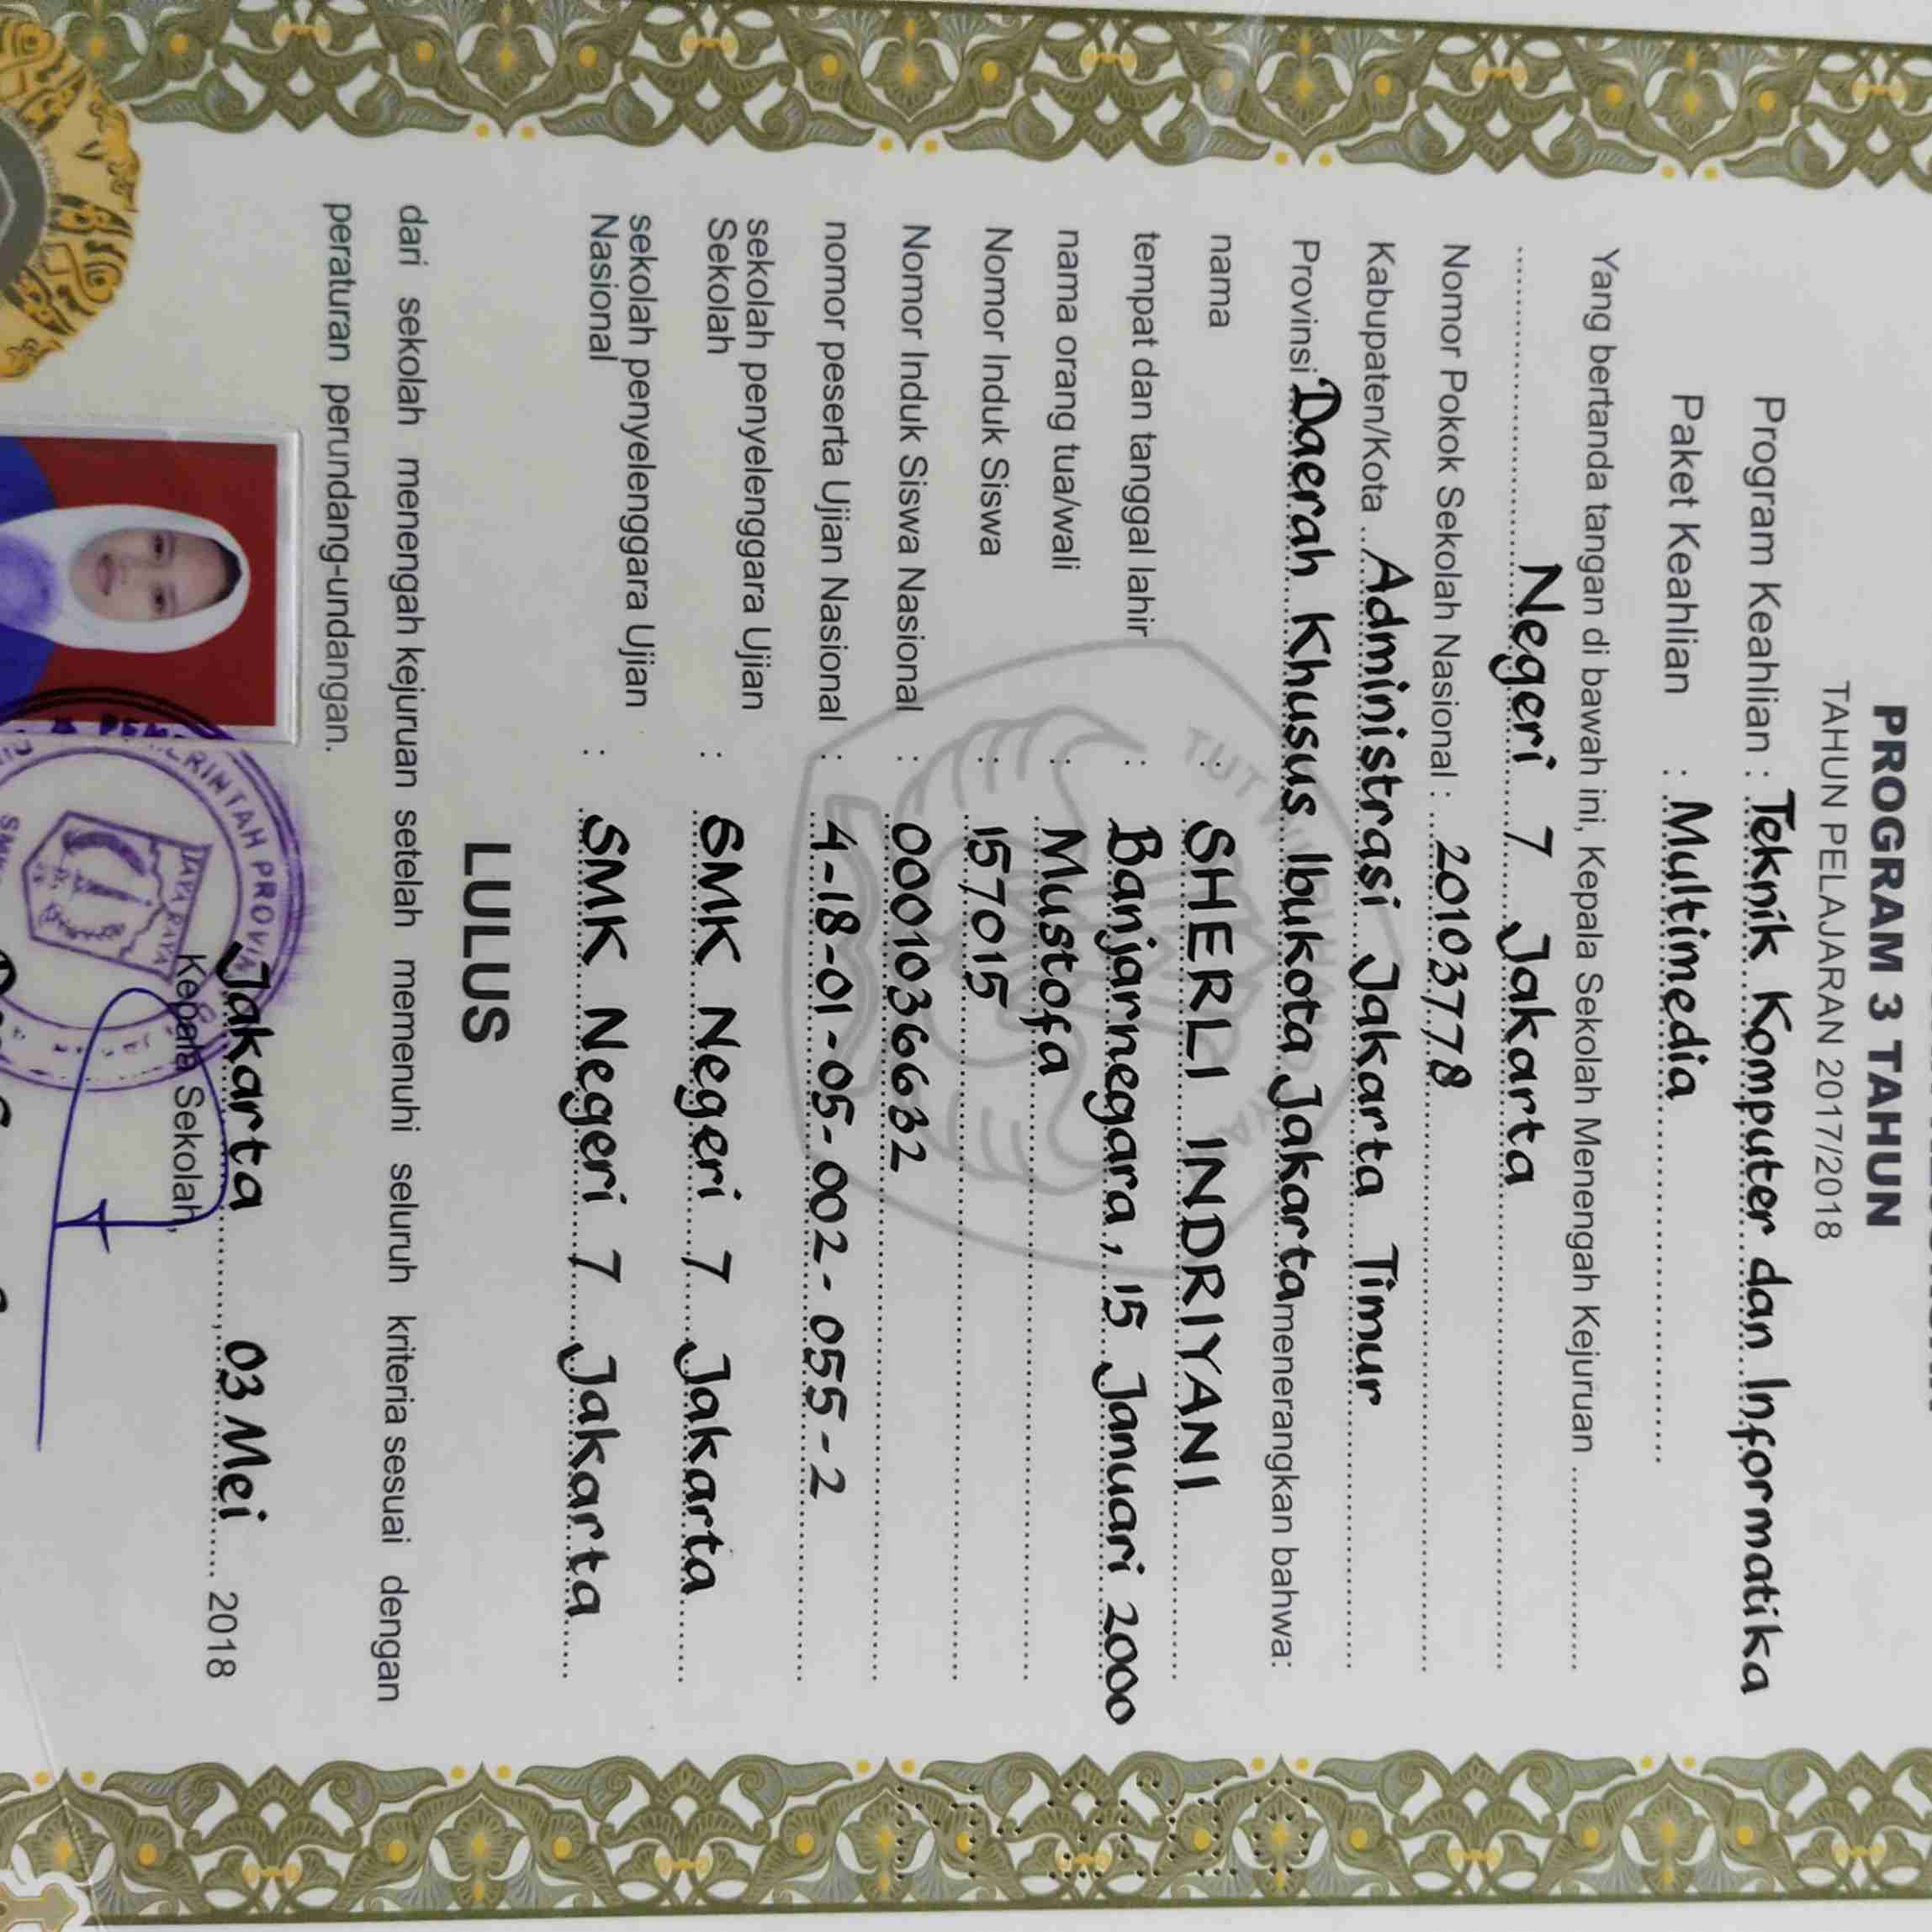 PROGRAM 3 TAHUN
TAHUN PELAJARAN 2017/2018
Program Keahlian : Teknik Komputer dan Informatika
Paket Keahlian : Multimedia
Yang bertanda tangan di bawah ini, Kepala Sekolah Menengah Kejuruan
Negeri 7 Jakarta
Nomor Pokok Sekolah Nasional : 20103778
Kabupaten/Kota Administrasi Jakarta Timur
Provinsi Daerah Khusus Ibukota Jakarta menerangkan bahwa:
nama : SHERLI INDRIYANI
tempat dan tanggal lahir : Banjarnegara, 15 Januari 2000
nama orang tua/wali : Mustofa
Nomor Induk Siswa : 157015
Nomor Induk Siswa Nasional : 0001036632
nomor peserta Ujian Nasional : 4-18-01-05-002-055-2
sekolah penyelenggara Ujian Sekolah : SMK Negeri 7 Jakarta
sekolah penyelenggara Ujian Nasional : SMK Negeri 7 Jakarta
LULUS
dari sekolah menengah kejuruan setelah memenuhi seluruh kriteria sesuai dengan
peraturan perundang-undangan.
Jakarta, 03 Mei 2018
Kepala Sekolah,
JAYA RAYA